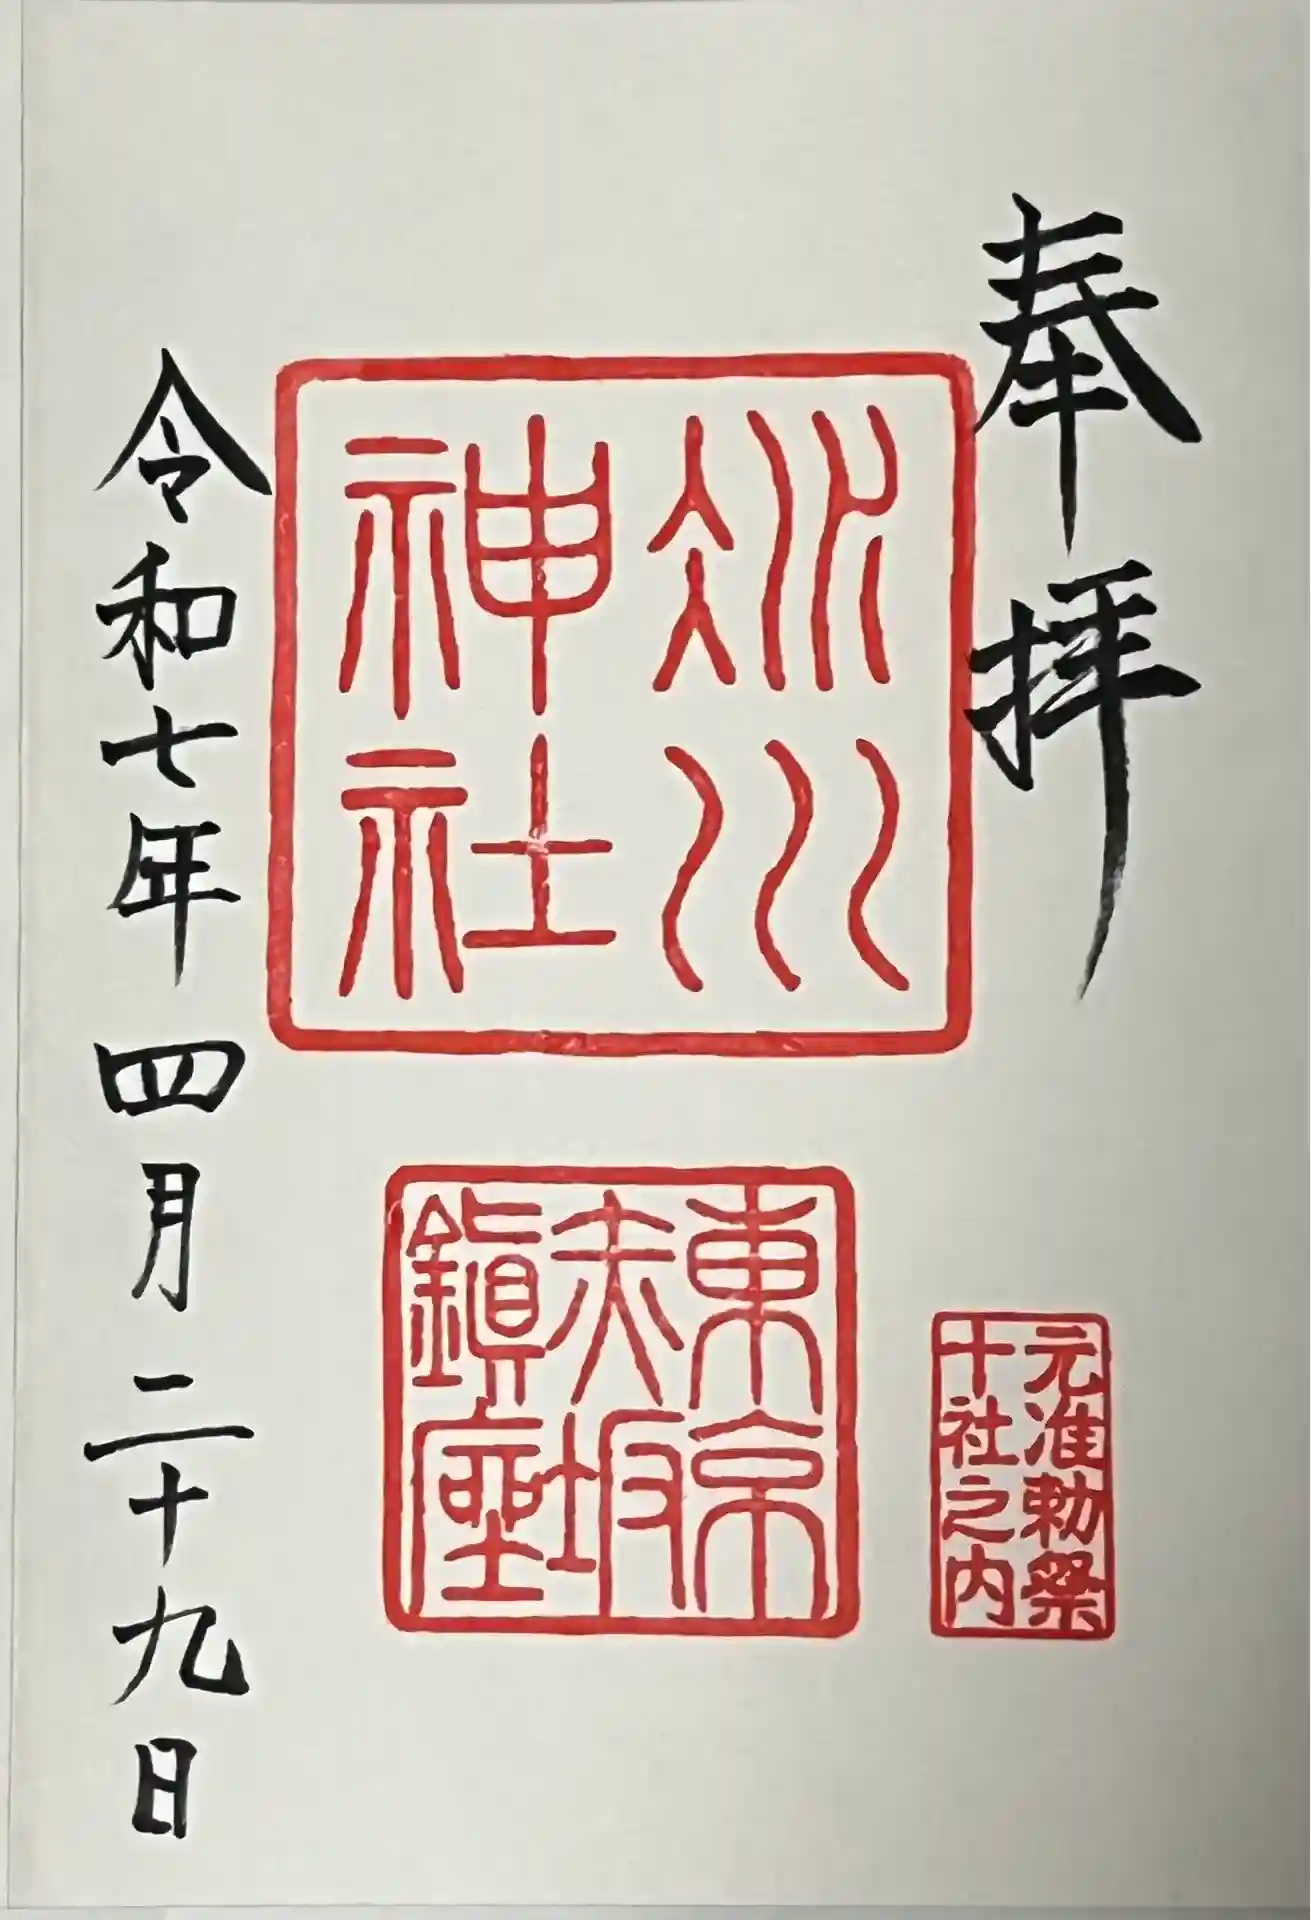 奉拝
氷川
神社
東京
赤坂
鎮座
元准勅祭
十社之内
令和七年四月二十九日